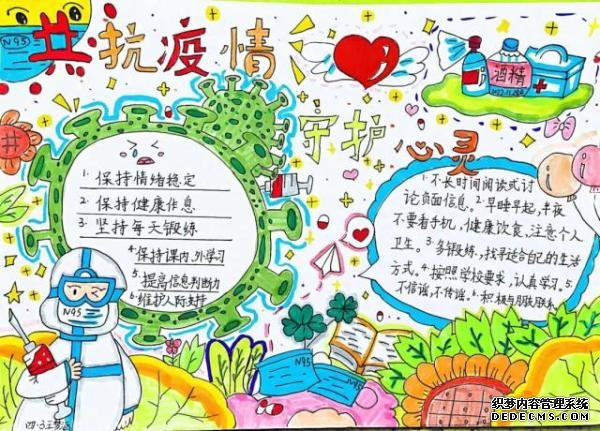 N95
共抗疫情
守护
心灵
酒精
1. 保持情绪稳定
2. 保持健康作息
3. 坚持每天锻练
4. 保持课内、外学习
5. 提高信息判断力
6. 维护人际支持
1. 不长时间阅读或讨
论负面信息。2. 早睡早起，半夜
不要看手机，健康饮食、注意个人
卫生。3. 多锻练，找寻适合自己的生活
方式。4. 按照学校要求，认真学习。5.
不信谣，不传谣。6. 积极与朋友联系
N95
N95
N95
织梦内容管理系统
DEDECMS.COM